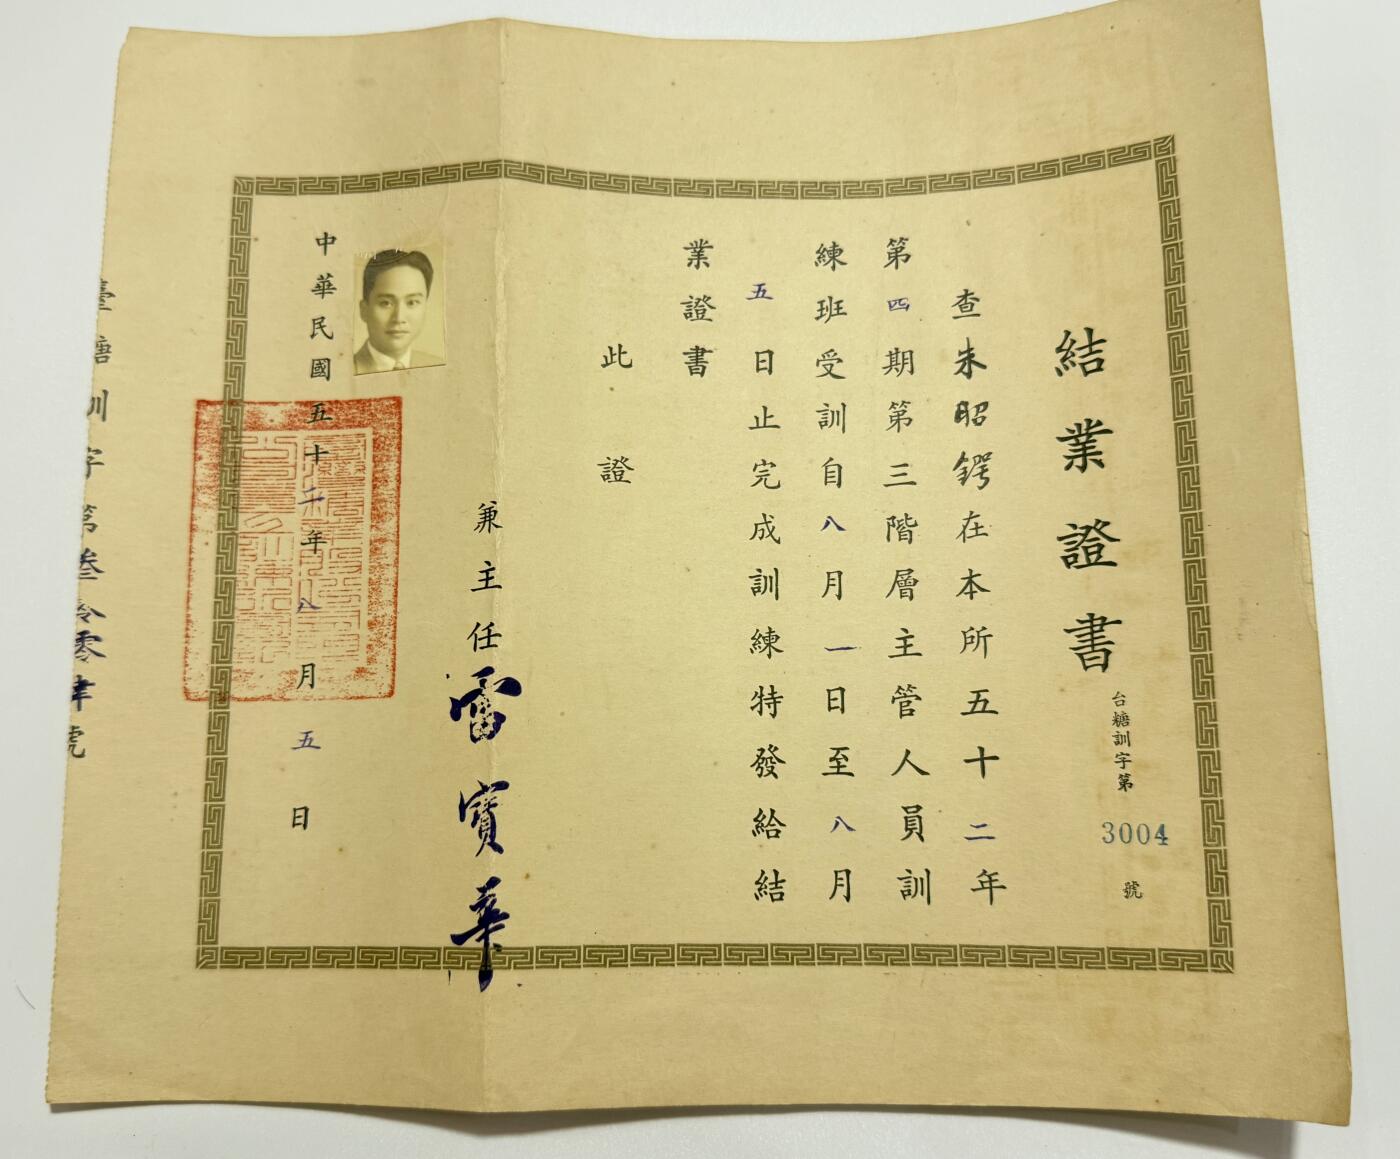 結業證書
台糖訓字第3004號
查朱昭鍔在本所五十二年
第四期第三階層主管人員訓
練班受訓自八月一日至八月
五日止完成訓練特發給結
業證書
此證
兼主任雷寶華
中華民國五十二年八月五日
臺糖訓字第叁零零肆號